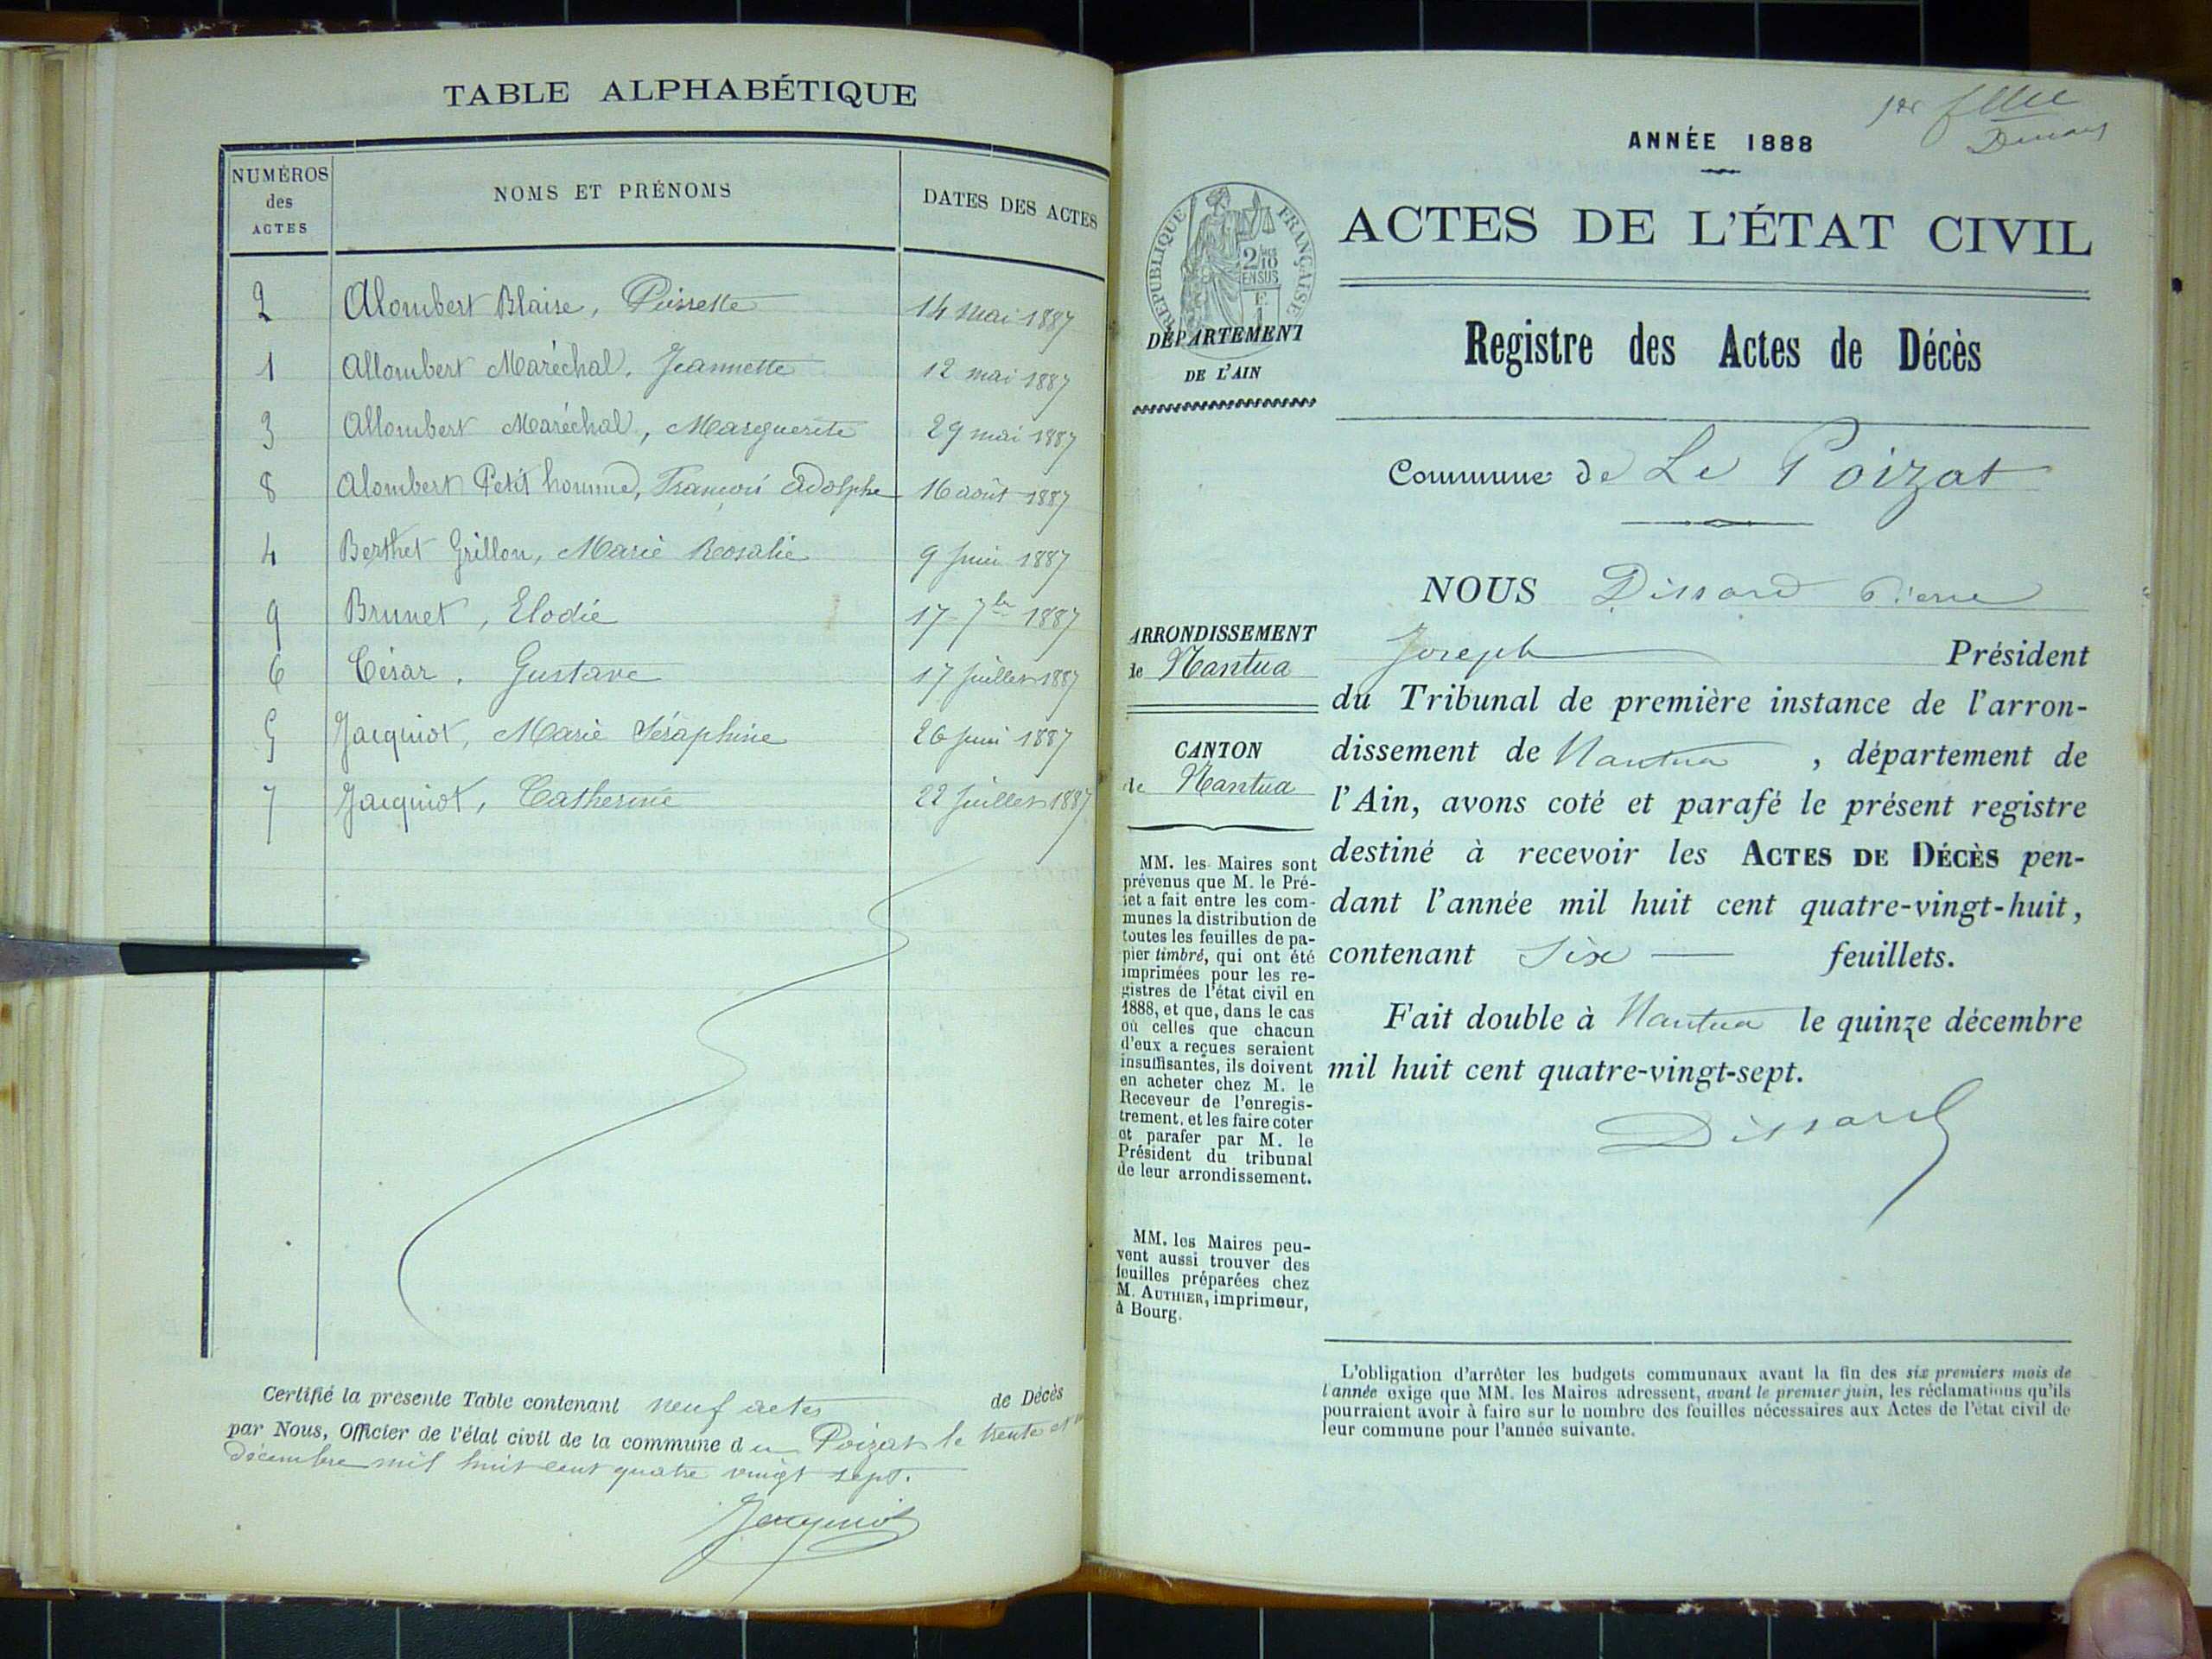 TABLE ALPHABÉTIQUE
NUMÉROS des ACTES
NOMS ET PRÉNOMS
DATES DES ACTES
2 Alombert Blaise, Pierrette 14 mai 1887
1 Allombert Maréchal, Jeannette 12 mai 1887
3 Allombert Maréchal, Marguerite 29 mai 1887
8 Alombert Petit homme, François Adolphe 16 août 1887
4 Berthet Grillon, Marie Rosalie 9 juin 1887
9 Brunet, Elodie 17 7bre 1887
6 César, Gustave 17 juillet 1887
5 Jacquiot, Marie Séraphine 26 juin 1887
7 Jacquiot, Catherine 22 juillet 1887
Certifié la présente Table contenant neuf actes de Décès
par Nous, Officier de l'état civil de la commune du Poizat le trente et
décembre mil huit cent quatre vingt sept.
Jacquiot
1er
ANNÉE 1888
ACTES DE L'ÉTAT CIVIL
REPUBLIQUE FRANÇAISE
2/10 EN SUS
DÉPARTEMENT
DE L'AIN
Registre des Actes de Décès
Commune de Le Poizat
ARRONDISSEMENT
de Nantua
CANTON
de Nantua
MM. les Maires sont
prévenus que M. le Pré-
fet a fait entre les com-
munes la distribution de
toutes les feuilles de pa-
pier timbré, qui ont été
imprimées pour les re-
gistres de l'état civil en
1888, et que, dans le cas
où celles que chacun
d'eux a reçues seraient
insuffisantes, ils doivent
en acheter chez M. le
Receveur de l'enregis-
trement, et les faire coter
et parafer par M. le
Président du tribunal
de leur arrondissement.
MM. les Maires peu-
vent aussi trouver des
feuilles préparées chez
M. AUTHIER, imprimeur,
à Bourg.
NOUS Dissard Pierre
Joseph Président
du Tribunal de première instance de l'arron-
dissement de Nantua, département de
l'Ain, avons coté et parafé le présent registre
destiné à recevoir les ACTES DE DÉCÈS pen-
dant l'année mil huit cent quatre-vingt-huit,
contenant Six feuillets.
Fait double à Nantua le quinze décembre
mil huit cent quatre-vingt-sept.
Dissard
L'obligation d'arrêter les budgets communaux avant la fin des six premiers mois de
l'année exige que MM. les Maires adressent, avant le premier juin, les réclamations qu'ils
pourraient avoir à faire sur le nombre des feuilles nécessaires aux Actes de l'état civil de
leur commune pour l'année suivante.